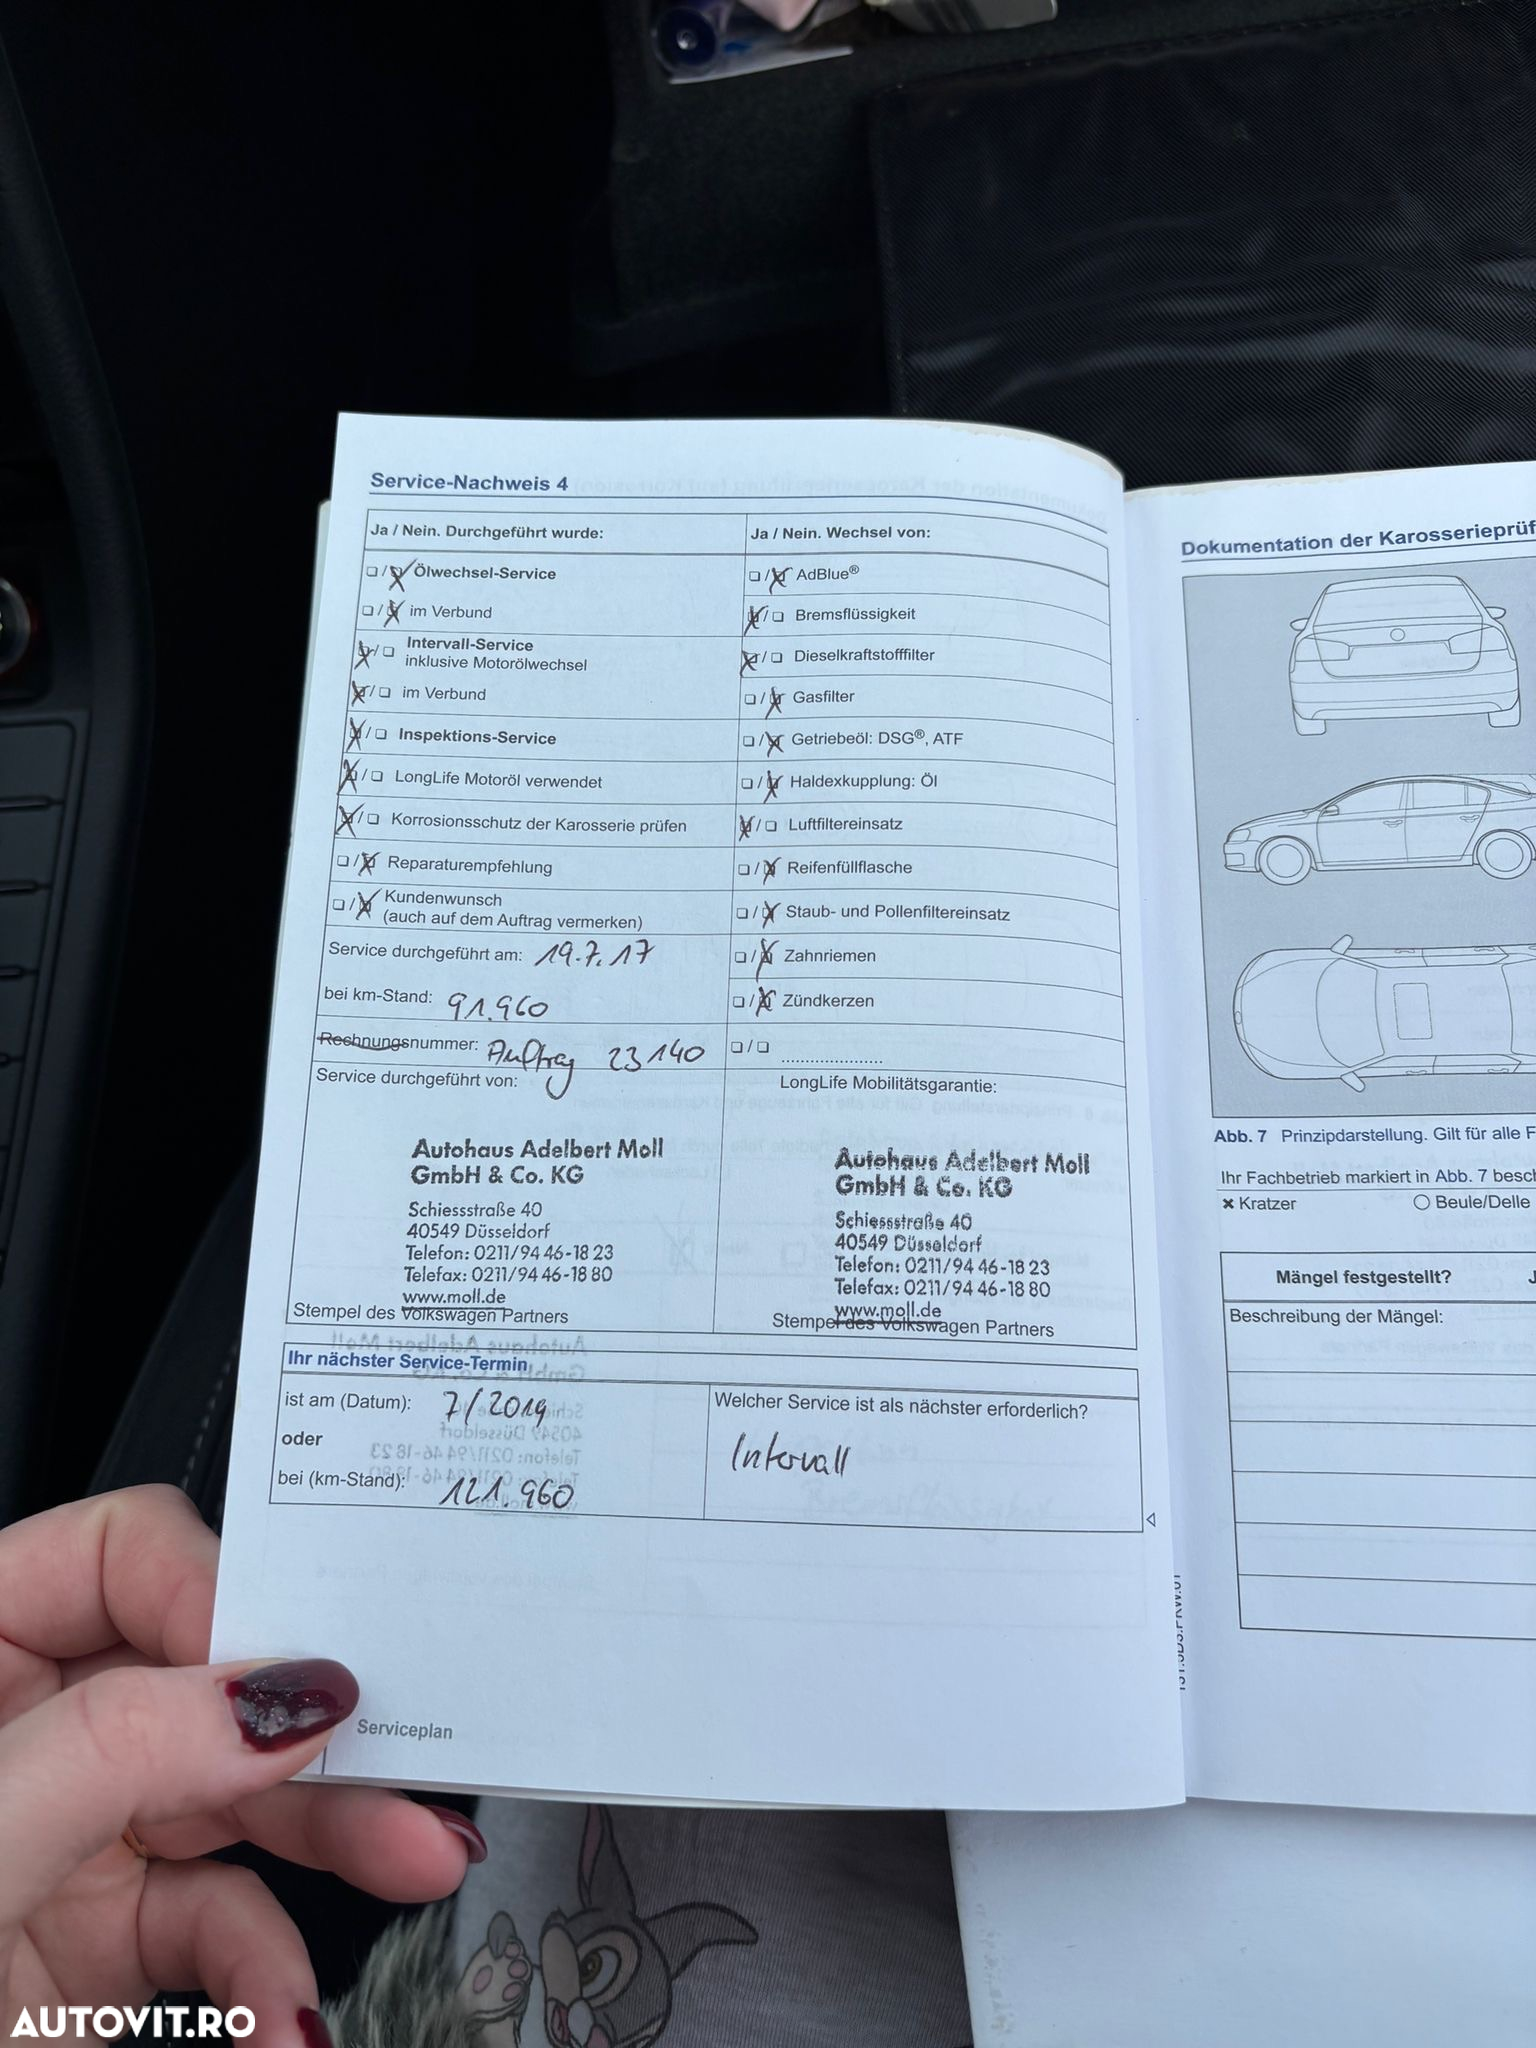 Service-Nachweis 4
Ja / Nein. Durchgeführt wurde:
Ölwechsel-Service
im Verbund
Intervall-Service
inklusive Motorölwechsel
im Verbund
Inspektions-Service
LongLife Motoröl verwendet
Korrosionsschutz der Karosserie prüfen
Reparaturempfehlung
Kundenwunsch
(auch auf dem Auftrag vermerken)
Service durchgeführt am: 19.7.17
bei km-Stand: 91.960
Rechnungsnummer: Auftrag 23140
Service durchgeführt von:
Autohaus Adelbert Moll
GmbH & Co. KG
Schiessstraße 40
40549 Düsseldorf
Telefon: 0211/94 46-18 23
Telefax: 0211/94 46-18 80
www.moll.de
Stempel des Volkswagen Partners
Ja / Nein. Wechsel von:
AdBlue®
Bremsflüssigkeit
Dieselkraftstofffilter
Gasfilter
Getriebeöl: DSG®, ATF
Haldexkupplung: Öl
Luftfiltereinsatz
Reifenfüllflasche
Staub- und Pollenfiltereinsatz
Zahnriemen
Zündkerzen
LongLife Mobilitätsgarantie:
Autohaus Adelbert Moll
GmbH & Co. KG
Schiessstraße 40
40549 Düsseldorf
Telefon: 0211/94 46-18 23
Telefax: 0211/94 46-18 80
www.moll.de
Stempel des Volkswagen Partners
Ihr nächster Service-Termin
ist am (Datum): 7/2019
oder
bei (km-Stand): 121.960
Welcher Service ist als nächster erforderlich?
Intervall
Serviceplan
Dokumentation der Karosserieprüf
Abb. 7 Prinzipdarstellung. Gilt für alle F
Ihr Fachbetrieb markiert in Abb. 7 besch
Kratzer
Beule/Delle
Mängel festgestellt? J
Beschreibung der Mängel:
AUTOVIT.RO